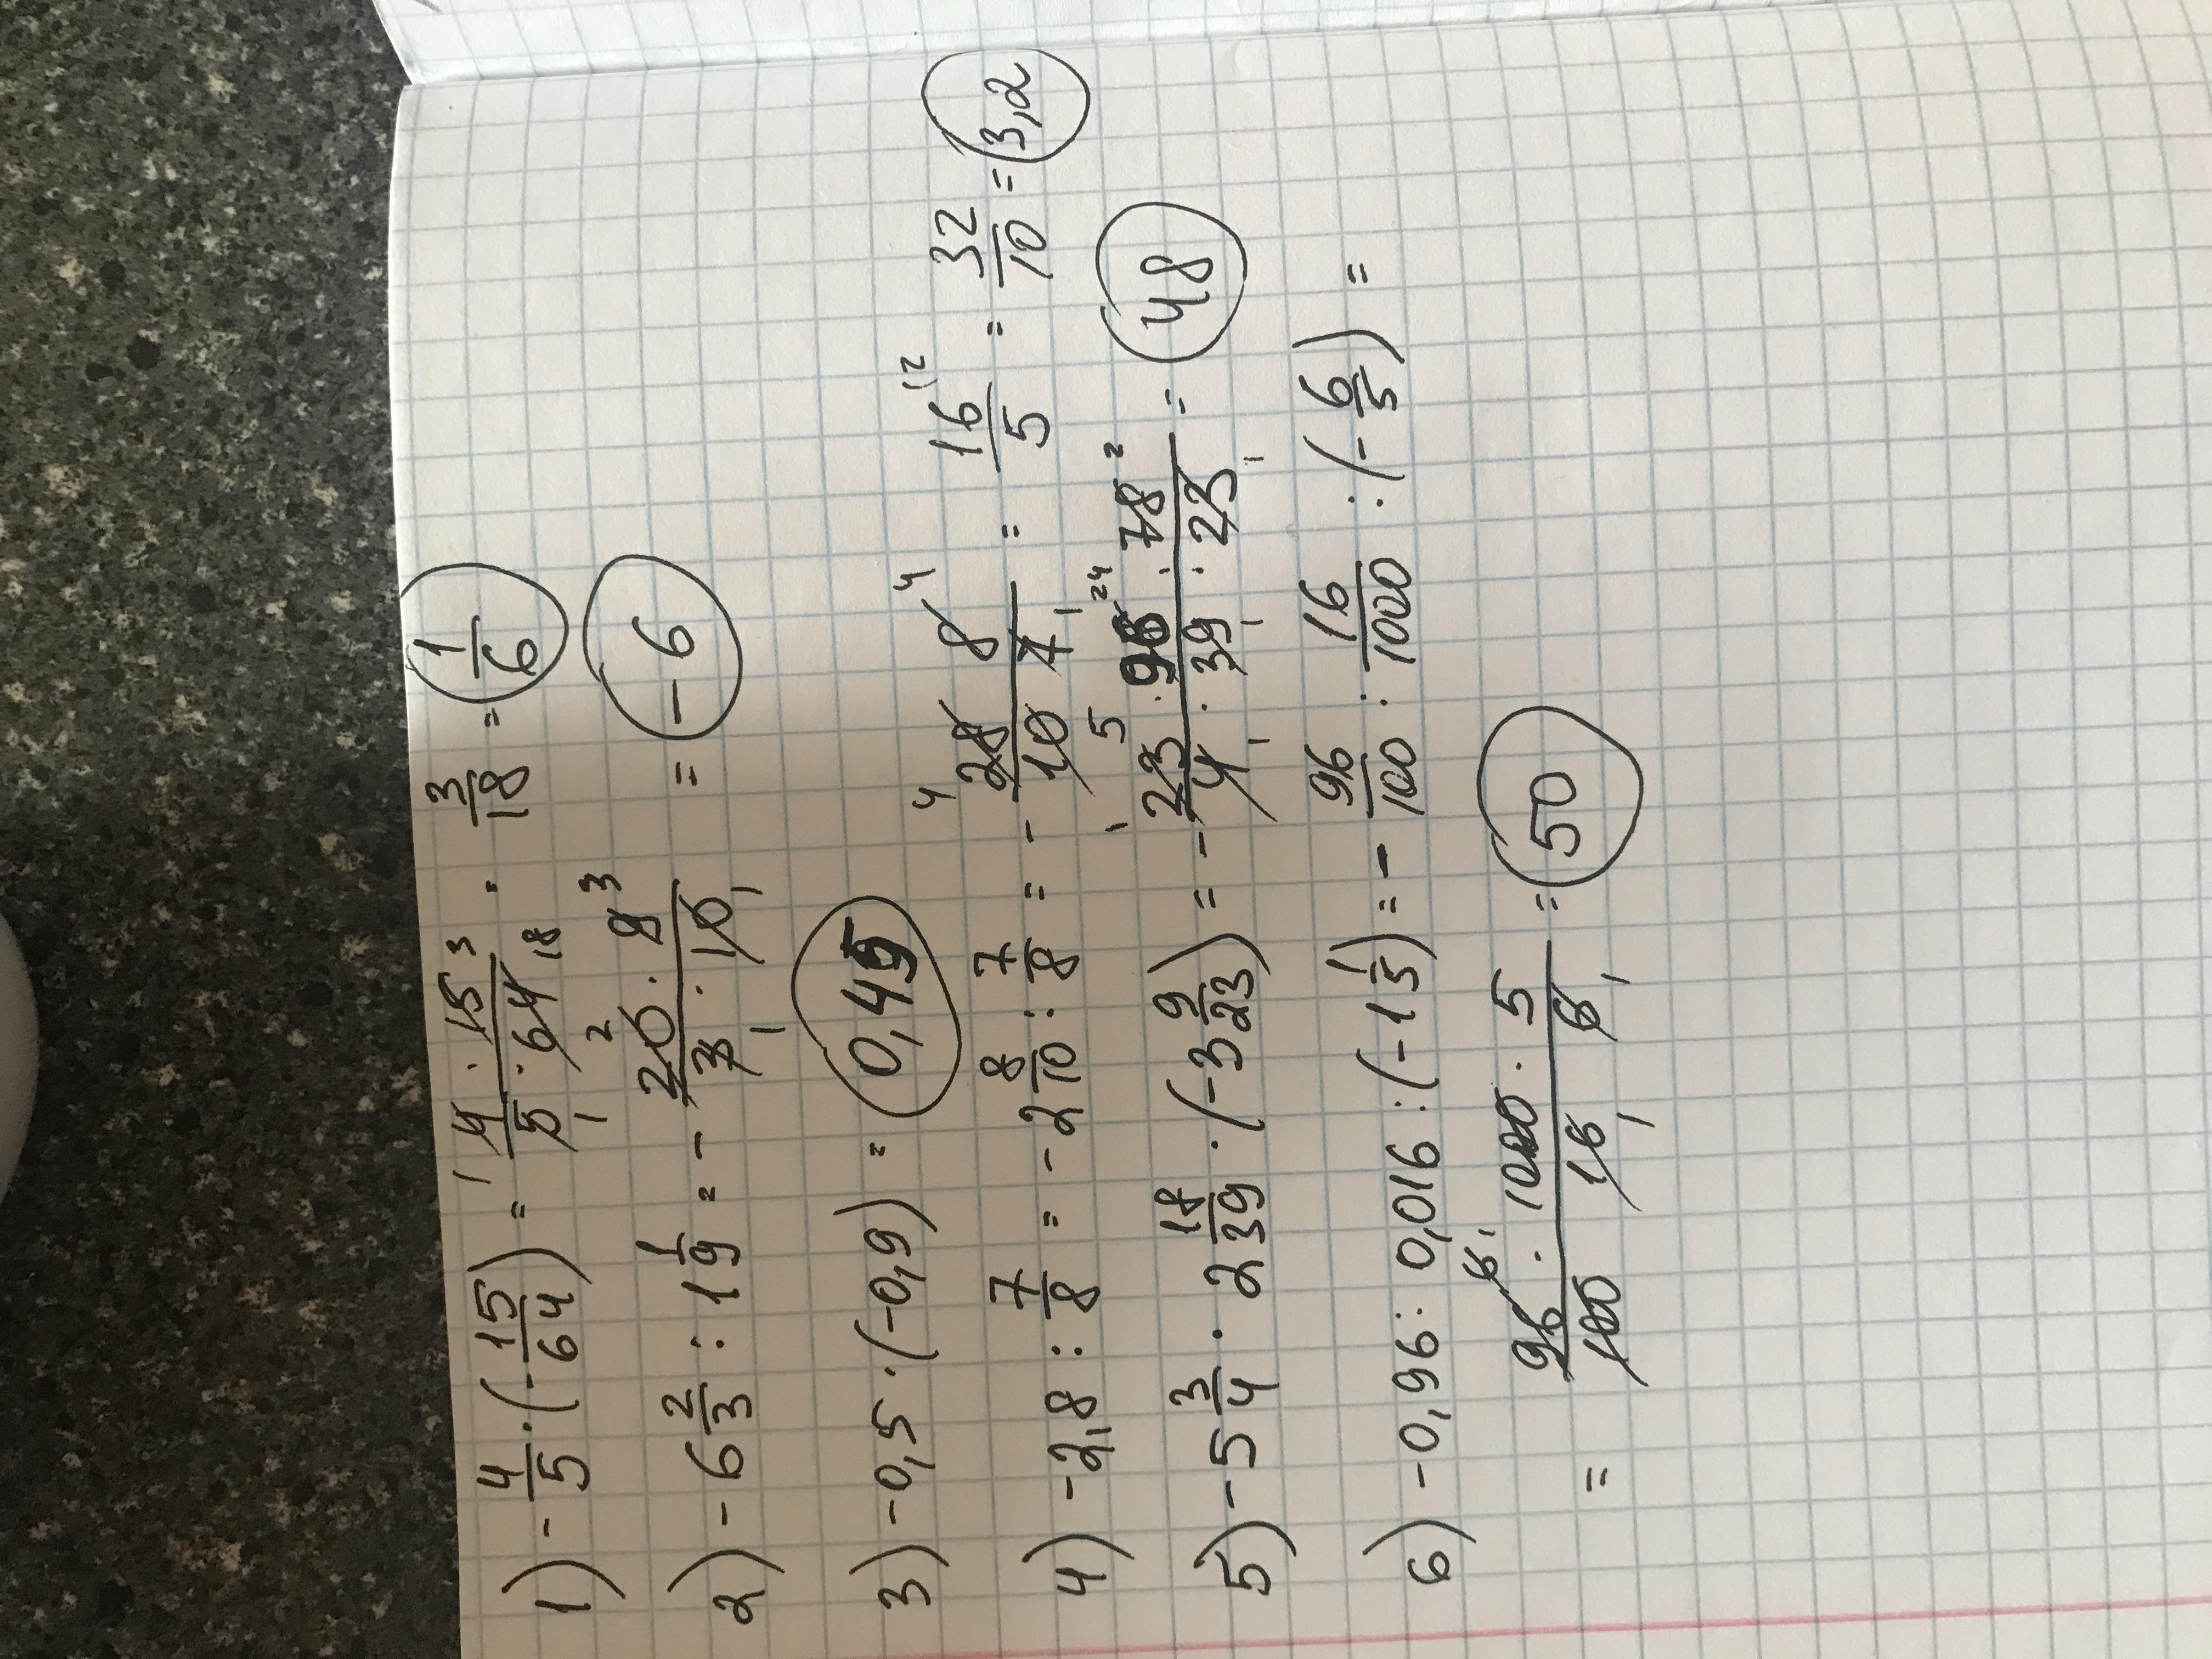 1) - 4/5 · (- 15/64) = 4 · 15/5 · 64 = 3/18 = 1/6
2) - 6 2/3 : 1 1/9 = - 20 · 9/3 · 10 = - 6
3) - 0,5 · (- 0,9) = 0,45
4) - 2,8 : 7/8 = - 2 8/10 : 7/8 = - 28 8/10 7 = 16/5 = 32/10 = 3,2
5) - 5 3/4 · 2 18/39 · (- 3 9/23) = - 23 · 96 · 78/4 · 39 · 23 = 48
6) - 0,96 : 0,016 : (- 1 1/5) = - 96/100 : 16/1000 : (- 6/5) =
= 96 · 1000 · 5/100 16 6 = 50